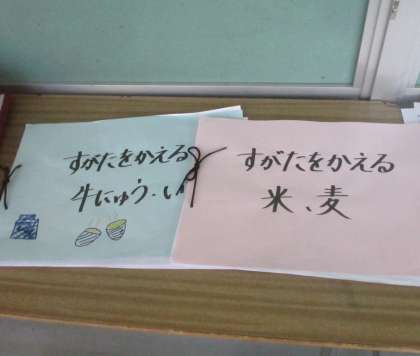 すがたをかえる
牛にゅう・い
すがたをかえる
米、麦